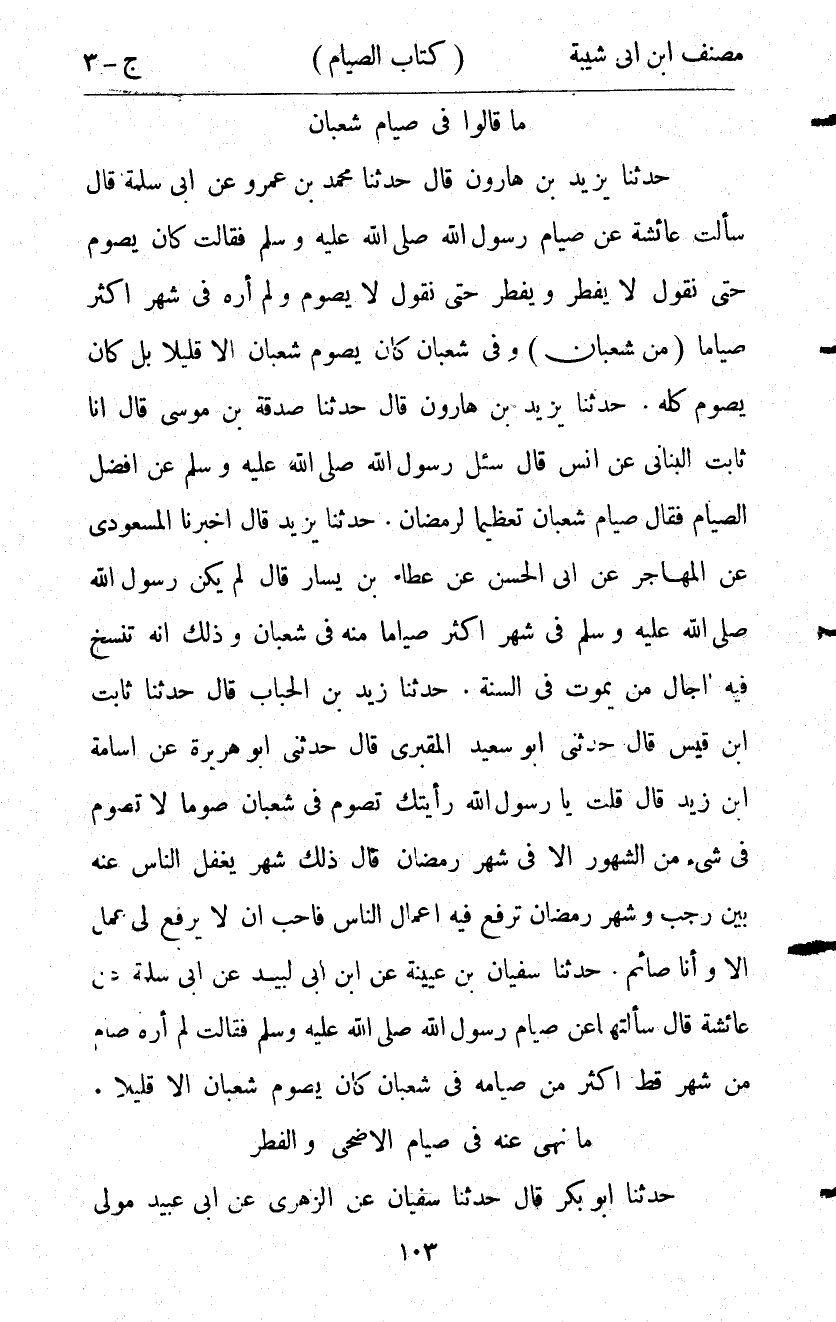 مصنف ابن ابى شيبة ( كتاب الصيام ) ج - ٣
ما قالوا فى صيام شعبان
حدثنا يزيد بن هارون قال حدثنا محمد بن عمرو عن ابى سلمة قال
سألت عائشة عن صيام رسول الله صلى الله عليه و سلم فقالت كان يصوم
حتى نقول لا يفطر و يفطر حتى نقول لا يصوم و لم أره فى شهر اكثر
صياما ( من شعبان ) و فى شعبان كان يصوم شعبان الا قليلا بل كان
يصوم كله . حدثنا يزيد بن هارون قال حدثنا صدقة بن موسى قال انا
ثابت البنانى عن انس قال سئل رسول الله صلى الله عليه و سلم عن افضل
الصيام فقال صيام شعبان تعظيما لرمضان . حدثنا يزيد قال اخبرنا المسعودى
عن المهاجر عن ابى الحسن عن عطاء بن يسار قال لم يكن رسول الله
صلى الله عليه و سلم فى شهر اكثر صياما منه فى شعبان و ذلك انه تنسخ
فيه اجال من يموت فى السنة . حدثنا زيد بن الحباب قال حدثنا ثابت
ابن قيس قال حدثنى ابو سعيد المقبرى قال حدثنى ابو هريرة عن اسامة
ابن زيد قال قلت يا رسول الله رأيتك تصوم فى شعبان صوما لا تصوم
فى شىء من الشهور الا فى شهر رمضان قال ذلك شهر يغفل الناس عنه
بين رجب و شهر رمضان ترفع فيه اعمال الناس فاحب ان لا يرفع لى عمل
الا و أنا صائم . حدثنا سفيان بن عيينة عن ابن ابى لبيد عن ابى سلمة عن
عائشة قال سألتها عن صيام رسول الله صلى الله عليه وسلم فقالت لم أره صام
من شهر قط اكثر من صيامه فى شعبان كان يصوم شعبان الا قليلا .
ما نهى عنه فى صيام الاضحى و الفطر
حدثنا ابو بكر قال حدثنا سفيان عن الزهرى عن ابى عبيد مولى
١٠٣